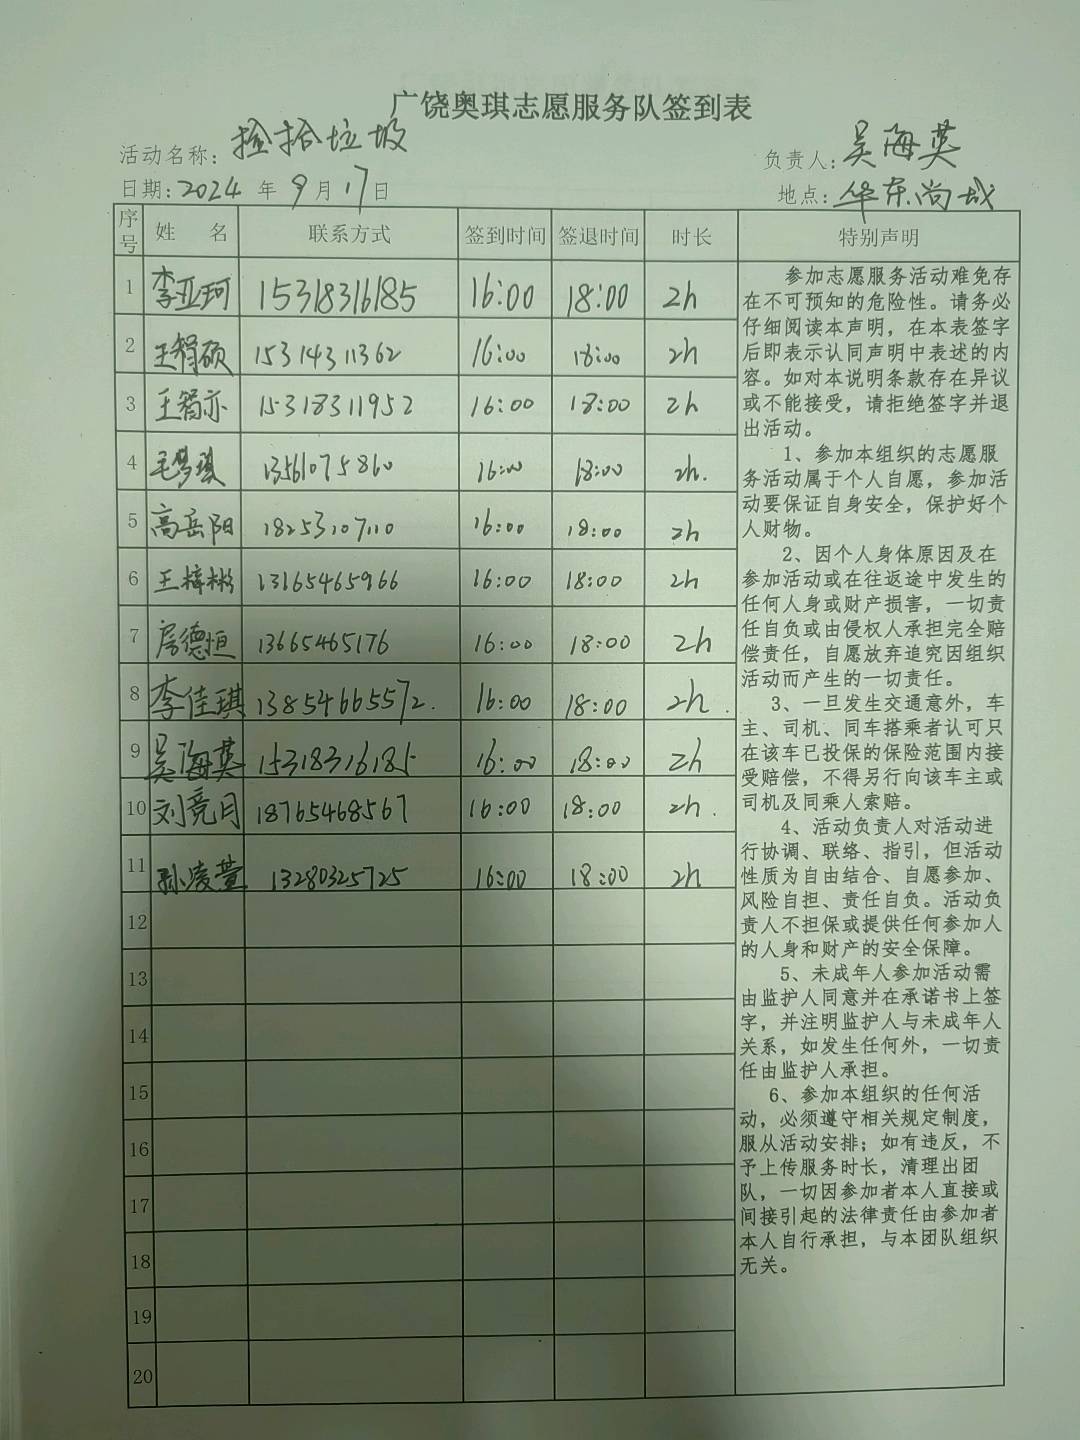 广饶奥琪志愿服务队签到表
活动名称：捡拾垃圾 负责人：吴海英
日期：2024 年 9 月 17 日 地点：华东尚城
序号 姓 名 联系方式 签到时间 签退时间 时长 特别声明
1 李亚珂 15318316185 16:00 18:00 2h
2 王智硕 15314311362 16:00 18:00 2h
3 王智亦 15318311952 16:00 18:00 2h
4 毛梦琪 13561075860 16:00 18:00 2h.
5 高岳阳 18253107110 16:00 18:00 2h
6 王梓彬 13165465966 16:00 18:00 2h
7 房德恒 13665465176 16:00 18:00 2h
8 李佳琪 13854665572. 16:00 18:00 2h.
9 吴海英 15318316185 16:00 18:00 2h
10 刘竞月 18765468567 16:00 18:00 2h.
11 孙凌萱 13280325725 16:00 18:00 2h
12
13
14
15
16
17
18
19
20
参加志愿服务活动难免存
在不可预知的危险性。请务必
仔细阅读本声明，在本表签字
后即表示认同声明中表述的内
容。如对本说明条款存在异议
或不能接受，请拒绝签字并退
出活动。
1、参加本组织的志愿服
务活动属于个人自愿，参加活
动要保证自身安全，保护好个
人财物。
2、因个人身体原因及在
参加活动或在往返途中发生的
任何人身或财产损害，一切责
任自负或由侵权人承担完全赔
偿责任，自愿放弃追究因组织
活动而产生的一切责任。
3、一旦发生交通意外，车
主、司机、同车搭乘者认可只
在该车已投保的保险范围内接
受赔偿，不得另行向该车主或
司机及同乘人索赔。
4、活动负责人对活动进
行协调、联络、指引，但活动
性质为自由结合、自愿参加、
风险自担、责任自负。活动负
责人不担保或提供任何参加人
的人身和财产的安全保障。
5、未成年人参加活动需
由监护人同意并在承诺书上签
字，并注明监护人与未成年人
关系，如发生任何外，一切责
任由监护人承担。
6、参加本组织的任何活
动，必须遵守相关规定制度，
服从活动安排；如有违反，不
予上传服务时长，清理出团
队，一切因参加者本人直接或
间接引起的法律责任由参加者
本人自行承担，与本团队组织
无关。